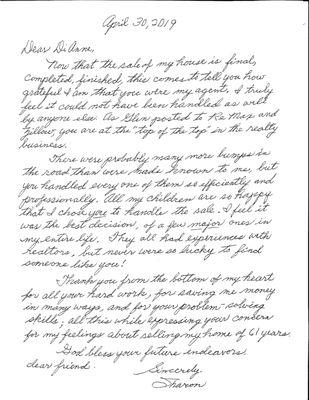 April 30, 2019
Dear DiAnne,
Now that the sale of my house is final,
completed, finished, this comes to tell you how
grateful I am that you were my agent. I truly
feel it could not have been handled as well
by anyone else. As Glen posted to Re Max and
Zillow, you are at the "top of the top" in the realty
business.
There were probably many more bumps in
the road than were made known to me, but
you handled every one of them so efficiently and
professionally. All my children are so happy
that I chose you to handle the sale. I feel it
was the best decision, of a few major ones in
my entire life. They all had experiences with
realtors, but never were so lucky to find
someone like you!
Thank you from the bottom of my heart
for all your hard work, for saving me money
in many ways, and for your problem-solving
skills; all this while expressing your concern
for my feelings about selling my home of 61 years.
God bless your future endeavors
dear friend.
Sincerely
Sharon